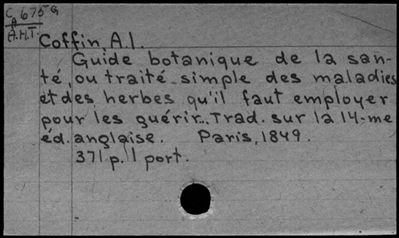 CA 675 G
A.M.T.
Coffin, A.I.
Guide botanique de la san-
té, ou traité simple des maladies
et des herbes qu'il faut employer
pour les guérir.. Trad. sur la 14-me
éd. anglaise. Paris, 1849.
371 p. 1 port.